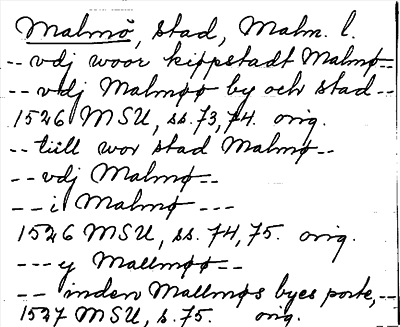 Malmö, stad, Malm. l.
-- vdj woor kippstadt Malmø --
-- vdj Malmøø by och stad --
1526 MSU, ss. 73, 74. orig.
-- tiill wor stad Malmø --
-- vdj Malmø --
-- i Malmø ---
1526 MSU, ss. 74, 75. orig.
--- y Mallmøø --
-- inden Mallmøs byes porte, --
1527 MSU, s. 75. orig.